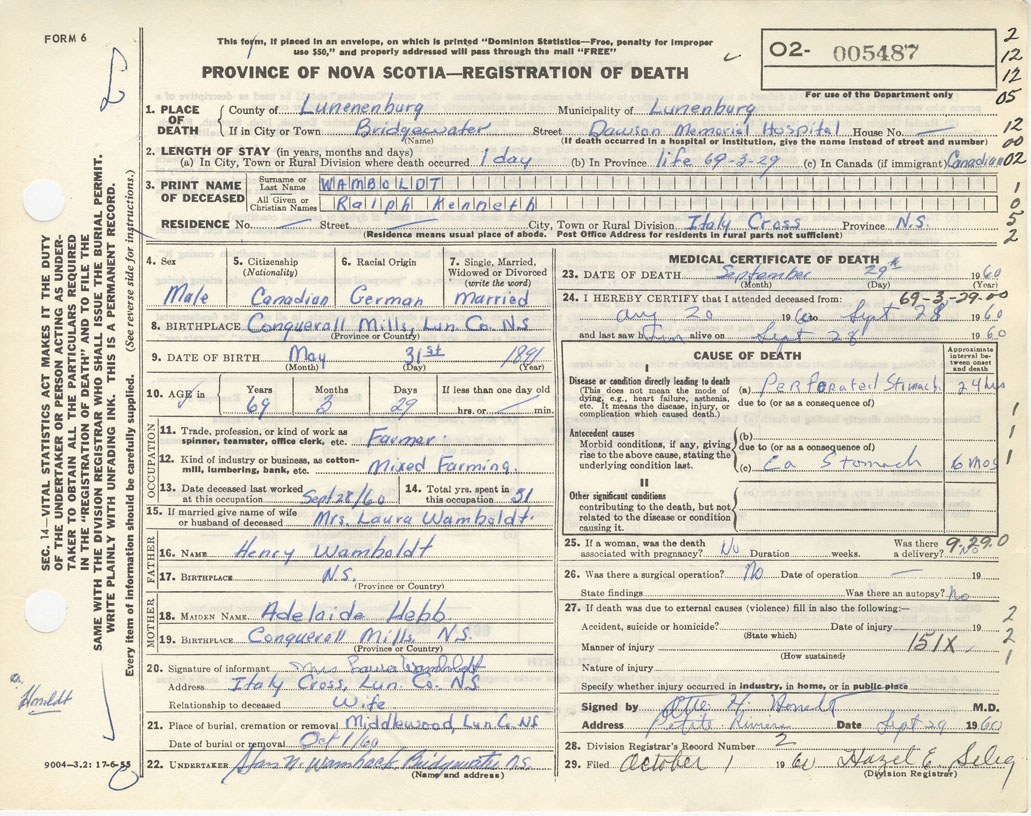 FORM 6
This form, if placed in an envelope, on which is printed "Dominion Statistics—Free, penalty for improper
use $50," and properly addressed will pass through the mail "FREE"
PROVINCE OF NOVA SCOTIA—REGISTRATION OF DEATH
O2- 005487
For use of the Department only
2
12
12
05
12
00
02
1
0
5
2
1. PLACE OF DEATH
County of Lunenenburg Municipality of Lunenburg
If in City or Town Bridgewater Street Dawson Memorial Hospital House No. —
(Name) (If death occurred in a hospital or institution, give the name instead of street and number)
2. LENGTH OF STAY (in years, months and days)
(a) In City, Town or Rural Division where death occurred 1 day (b) In Province life 69-3-29 (c) In Canada (if immigrant) Canadian
3. PRINT NAME OF DECEASED
Surname or Last Name WAMBOLDT
All Given or Christian Names Ralph Kenneth
RESIDENCE No. — Street — City, Town or Rural Division Italy Cross Province N.S.
(Residence means usual place of abode. Post Office Address for residents in rural parts not sufficient)
4. Sex
Male
5. Citizenship
(Nationality)
Canadian
6. Racial Origin
German
7. Single, Married, Widowed or Divorced
(write the word)
Married
8. BIRTHPLACE Conquerall Mills, Lun. Co. N.S
(Province or Country)
9. DATE OF BIRTH May 31st 1891
(Month) (Day) (Year)
10. AGE in
Years Months Days If less than one day old
69 3 29 hrs. or — min.
OCCUPATION
11. Trade, profession, or kind of work as spinner, teamster, office clerk, etc. Farmer.
12. Kind of industry or business, as cotton-mill, lumbering, bank, etc. Mixed Farming.
13. Date deceased last worked at this occupation Sept 28/60
14. Total yrs. spent in this occupation 51
15. If married give name of wife or husband of deceased Mrs. Laura Wamboldt.
FATHER
16. NAME Henry Wamboldt
17. BIRTHPLACE N.S.
(Province or Country)
MOTHER
18. MAIDEN NAME Adelaide Hebb
19. BIRTHPLACE Conquerall Mills N.S.
(Province or Country)
20. Signature of informant Mrs Laura Wamboldt
Address Italy Cross, Lun. Co. N.S
Relationship to deceased Wife.
21. Place of burial, cremation or removal Middlewood, Lun. Co. N.S
Date of burial or removal Oct 1/60
22. UNDERTAKER Bridgewater N.S.
(Name and address)
MEDICAL CERTIFICATE OF DEATH
23. DATE OF DEATH September 29th 1960
(Month) (Day) (Year)
69-3-29.00
24. I HEREBY CERTIFY that I attended deceased from:
Aug 20 1960 to Sept 28 1960
and last saw him alive on Sept 28 1960
CAUSE OF DEATH
Approximate interval between onset and death
I
Disease or condition directly leading to death
(This does not mean the mode of dying, e.g., heart failure, asthenia, etc. It means the disease, injury, or complication which caused death.)
(a) Perforated Stomach 24 hrs
due to (or as a consequence of)
Antecedent causes
Morbid conditions, if any, giving rise to the above cause, stating the underlying condition last.
(b)
due to (or as a consequence of)
(c) Ca Stomach 6 mos
II
Other significant conditions contributing to the death, but not related to the disease or condition causing it.
1
1
1
25. If a woman, was the death associated with pregnancy? No Duration weeks. Was there a delivery? No
9.29.0
26. Was there a surgical operation? No Date of operation — 19
State findings Was there an autopsy? No
27. If death was due to external causes (violence) fill in also the following:—
Accident, suicide or homicide? Date of injury 19
(State which)
Manner of injury 151X
(How sustained)
Nature of injury
Specify whether injury occurred in industry, in home, or in public place
2
2
1
Signed by M.D.
Address Petite Riviere Date Sept 29 1960
28. Division Registrar's Record Number 2
29. Filed October 1 1960 Hazel E. Selig
(Division Registrar)
SEC. 14—VITAL STATISTICS ACT MAKES IT THE DUTY
OF THE UNDERTAKER OR PERSON ACTING AS UNDER-
TAKER TO OBTAIN ALL THE PARTICULARS REQUIRED
IN THE "REGISTRATION OF DEATH" AND TO FILE THE
SAME WITH THE DIVISION REGISTRAR WHO SHALL ISSUE THE BURIAL PERMIT.
WRITE PLAINLY WITH UNFADING INK. THIS IS A PERMANENT RECORD.
Every item of information should be carefully supplied. (See reverse side for instructions.)
9004—3.2: 17-6-55